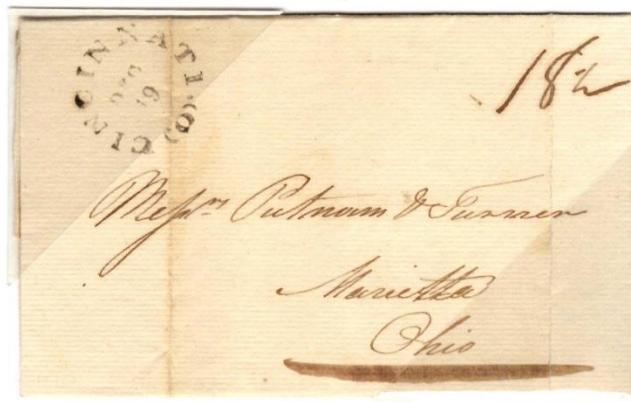 CINCINNATI.(O)
DEC
19
18½
Messrs Putnam & Turner
Marietta
Ohio